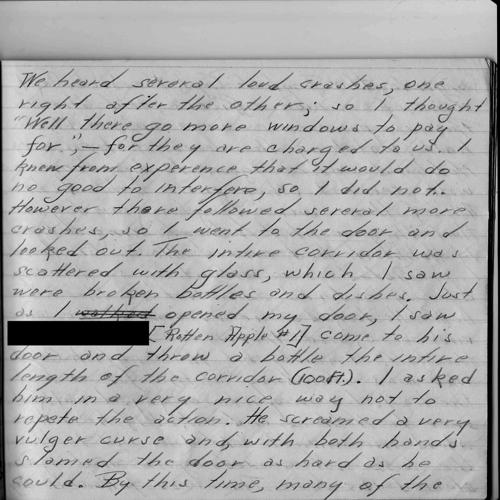 We heard several loud crashes, one
right after the other; so I thought
"Well there go more windows to pay
for", — for they are charged to us. I
knew from experence that it would do
no good to interfere, so I did not.
However there followed several more
crashes, so I went to the door and
looked out. The intire corridor was
scattered with glass, which I saw
were broken bottles and dishes. Just
as I walked opened my door, I saw
[Rotten Apple #1] come to his
door and throw a bottle the intire
length of the corridor (100ft.). I asked
him in a very nice way not to
repete the action. He screamed a very
vulger curse and, with both hands
slamed the door as hard as he
could. By this time, many of the